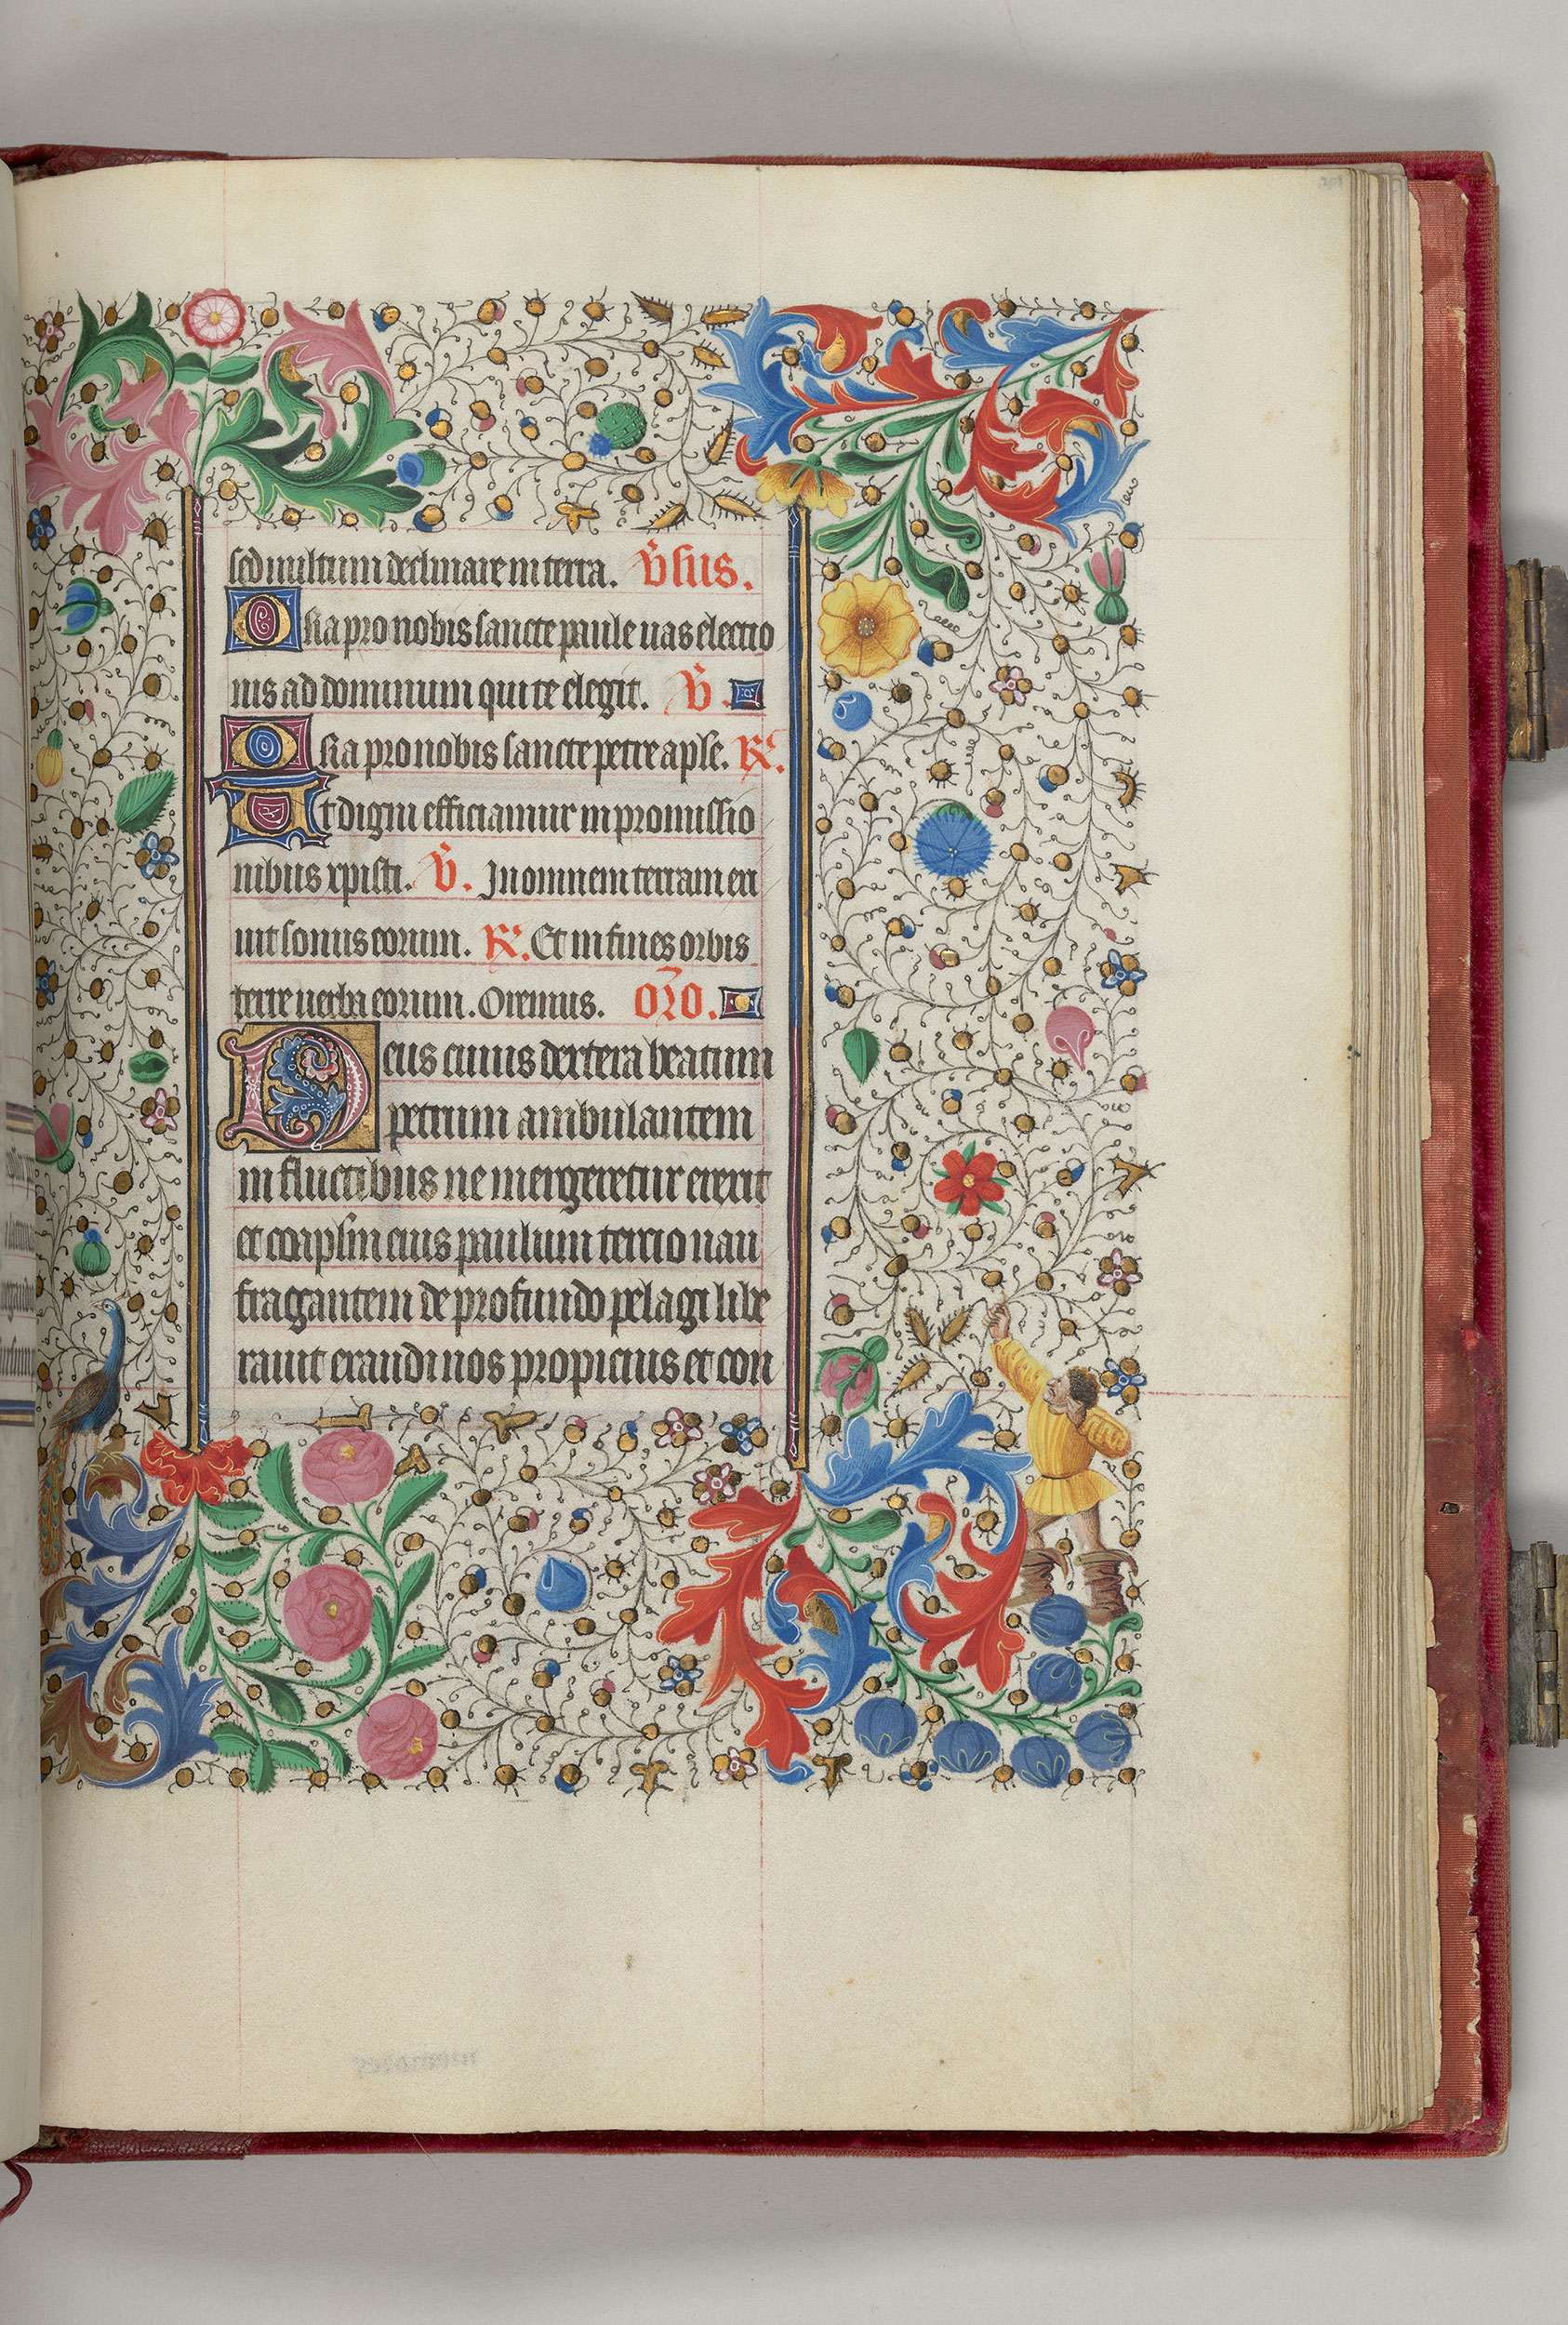 sed multum declinare in terra. V̄sus.
Ora pro nobis sancte paule uas electio
nis ad dominum qui te elegit. V̄.
Ora pro nobis sancte petre apl̄e. R̄.
Ut digni efficiamur in promissio
nibus xpisti. V̄. In omnem terram exi
uit sonus eorum. R̄. Et in fines orbis
terre uerba eorum. Oremus. Or̄o.
Deus cuius dextera beatum
petrum ambulantem
in fluctibus ne mergeretur erexit
et coapl̄m eius paulum tercio nau
fragantem de profundo pelagi libe
rauit exaudi nos propicius et con